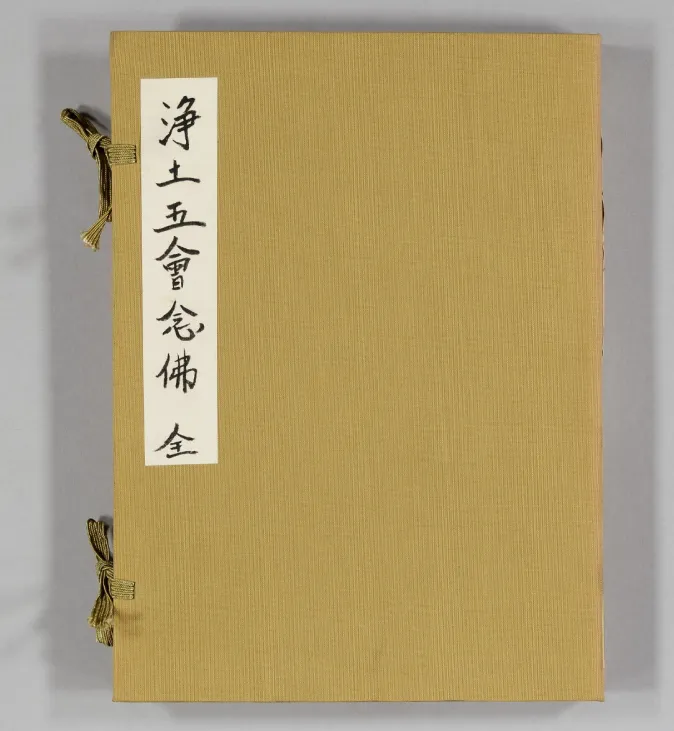 浄土五會念佛 全